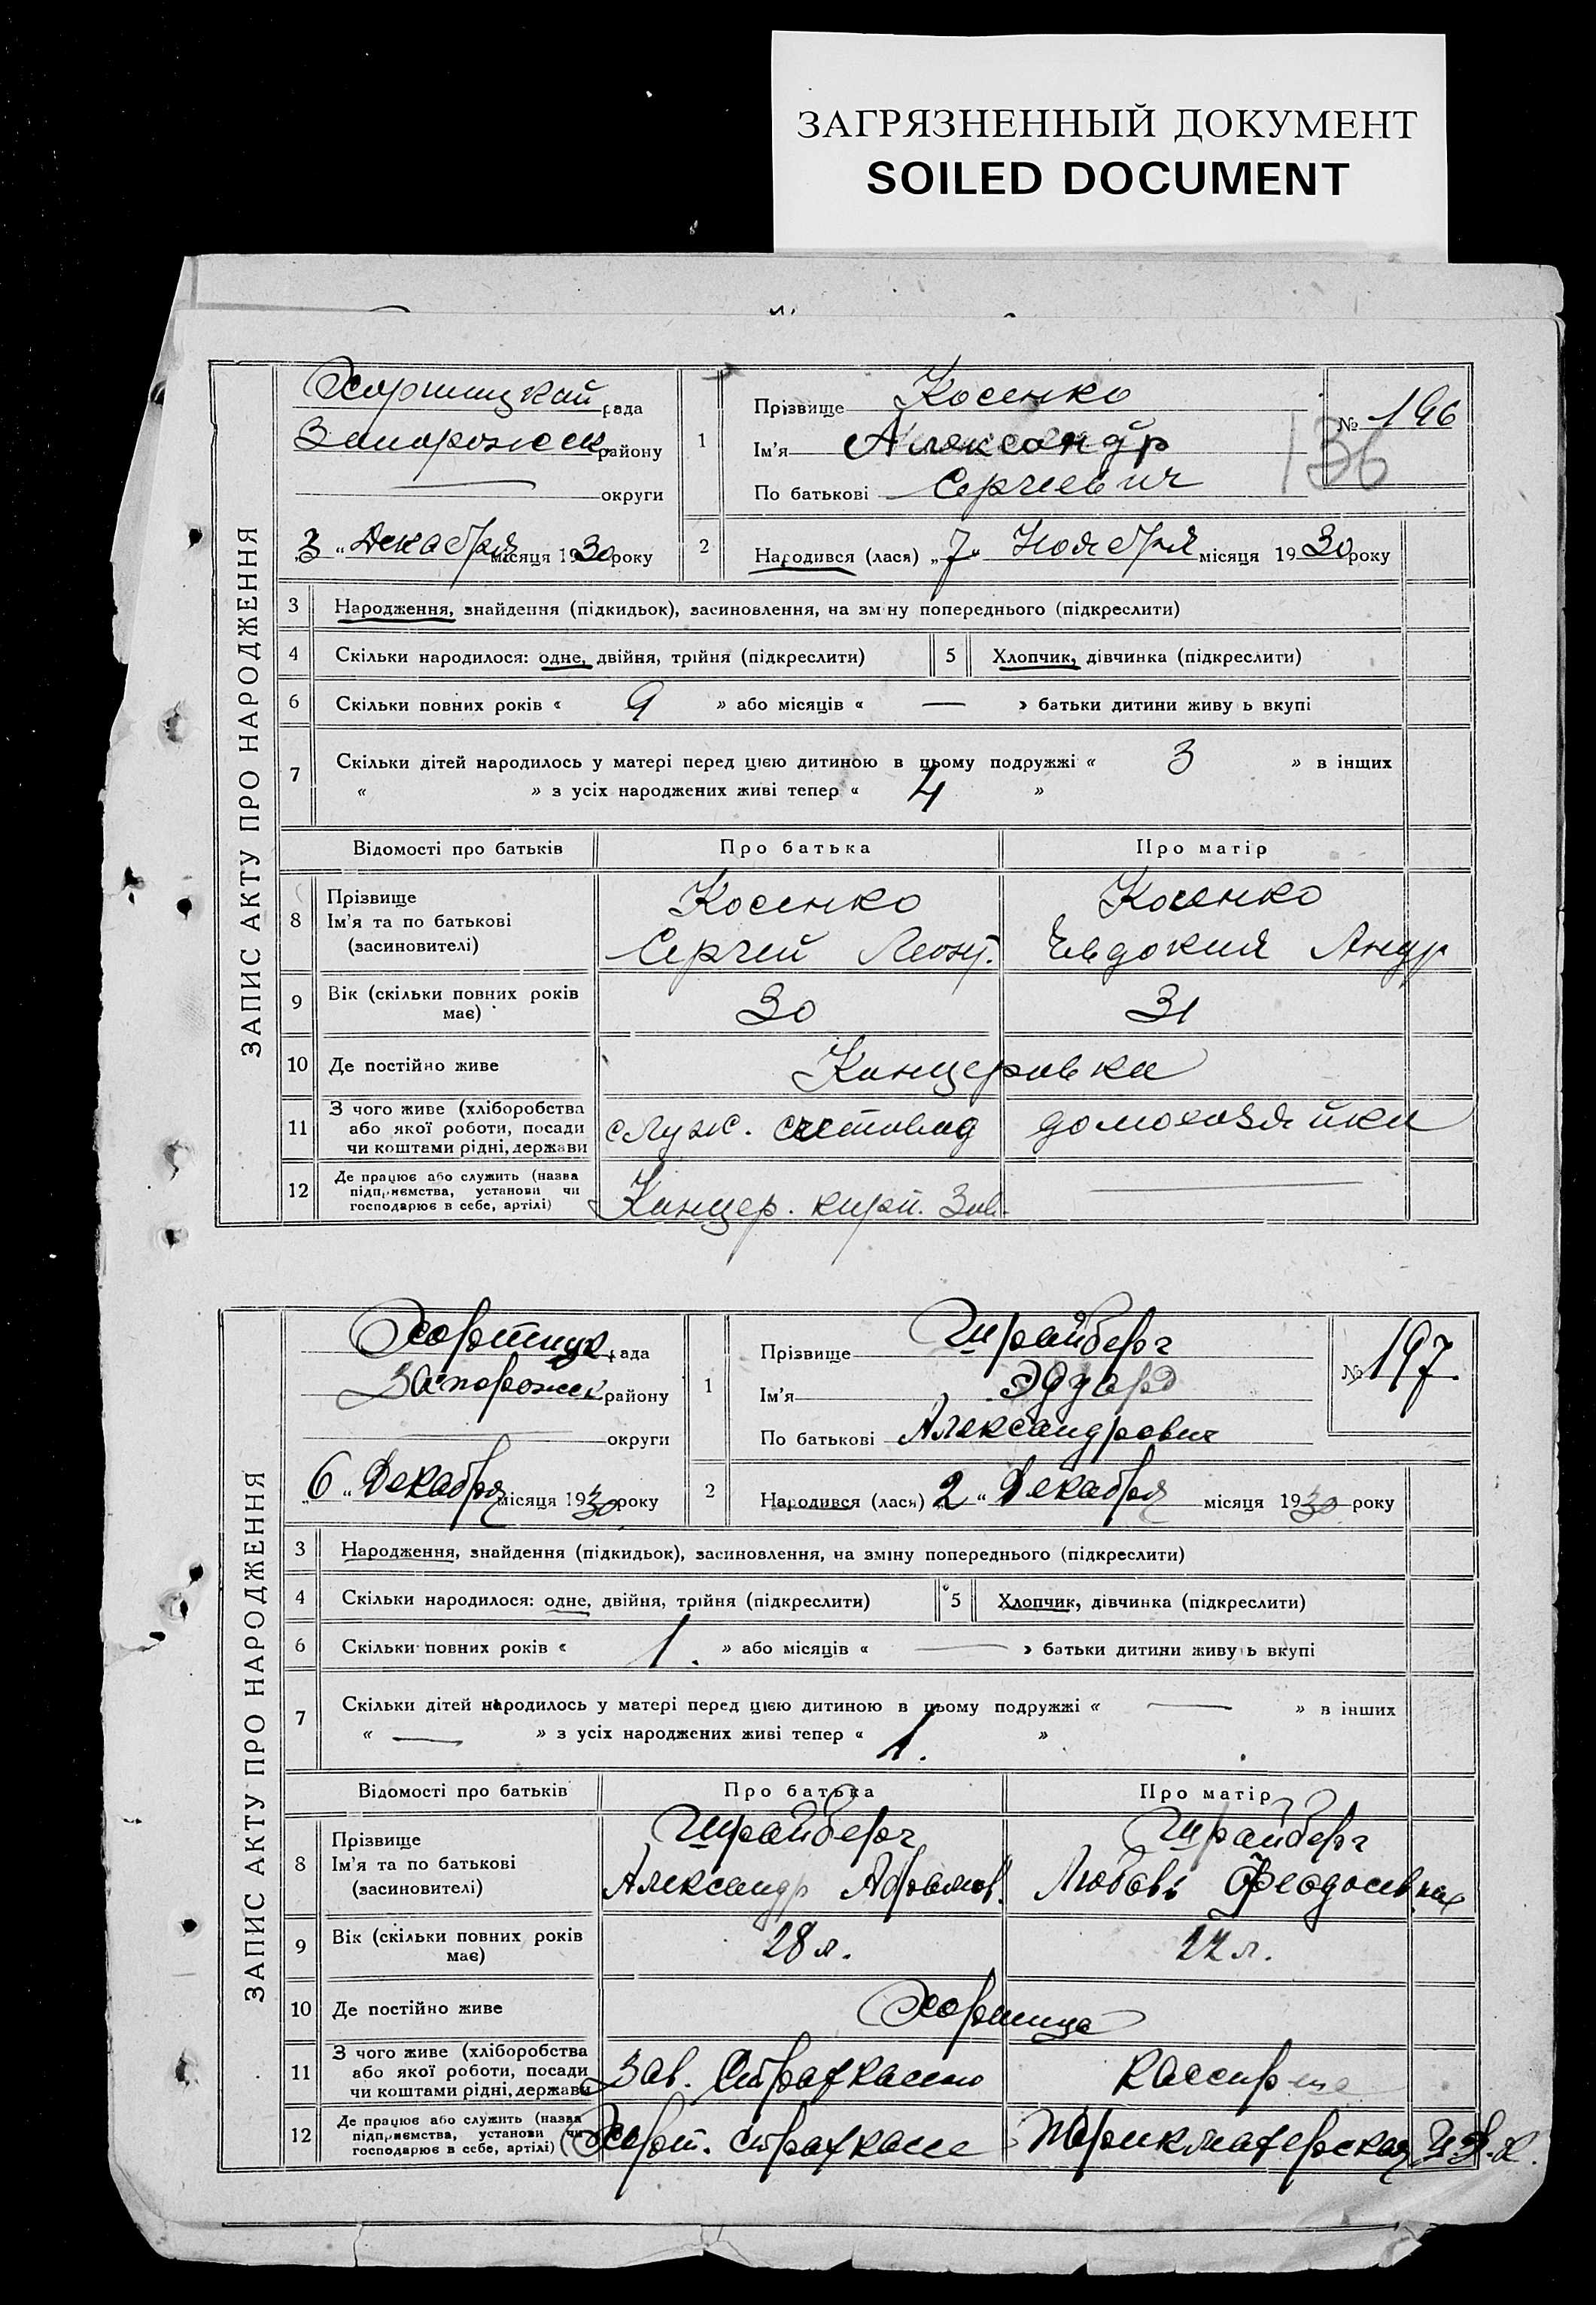 ЗАГРЯЗНЕННЫЙ ДОКУМЕНТ
SOILED DOCUMENT
ЗАПИС АКТУ ПРО НАРОДЖЕННЯ
Хортицкой рада
Запорожск. району
округи
3 „ Декабря місяця 1930 року
1
Прізвище Косенко
Ім'я Александр
По батькові Сергеевич
№ 196
136
2
Народився (лася) „7" Ноября місяця 1930 року
3 Народження, знайдення (підкидьок), засиновлення, на зміну попереднього (підкреслити)
4 Скільки народилося: одне, двійня, трійня (підкреслити) 5 Хлопчик, дівчинка (підкреслити)
6 Скільки повних років « 9 » або місяців « — » батьки дитини живу ь вкупі
7 Скільки дітей народилось у матері перед цією дитиною в цьому подружжі « 3 » в інщих
« » з усіх народжених живі тепер « 4 »
Відомості про батьків Про батька Про матір
8 Прізвище Косенко Косенко
Ім'я та по батькові Сергей Леонт. Евдокия Андр
(засиновителі)
9 Вік (скільки повних років має) 30 31
10 Де постійно живе Канцеровка
11 З чого живе (хліборобства або якої роботи, посади чи коштами рідні, держави служ. счетовод домохозяйка
12 Де працює або служить (назва підприємства, установи чи господарює в себе, артілі) Канцер. кирп. Зав. —
ЗАПИС АКТУ ПРО НАРОДЖЕННЯ
Хортицк. рада
Запорожск району
округи
„6" Декабря місяця 1930 року
1
Прізвище Штрайберг
Ім'я Эдуард
По батькові Александрович
№ 197.
2
Народився (лася) 2 " Декабря місяця 1930 року
3 Народження, знайдення (підкидьок), засиновлення, на зміну попереднього (підкреслити)
4 Скільки народилося: одне, двійня, трійня (підкреслити) 5 Хлопчик, дівчинка (підкреслити)
6 Скільки повних років « 1. » або місяців « — » батьки дитини живу ь вкупі
7 Скільки дітей народилось у матері перед цією дитиною в цьому подружжі « — » в інших
« — » з усіх народжених живі тепер « 1. »
Відомості про батьків Про батька Про матір
8 Прізвище Штрайберг Штрайберг
Ім'я та по батькові Александр Абрамов. Любовь Феодосевна
(засиновителі)
9 Вік (скільки повних років має) 28 л. 22 л.
10 Де постійно живе Хортица
11 З чого живе (хліборобства або якої роботи, посади чи коштами рідні, держави Зав. Страхкассою Кассирша
12 Де працює або служить (назва підприємства, установи чи господарює в себе, артілі) Хорт. страхкасса